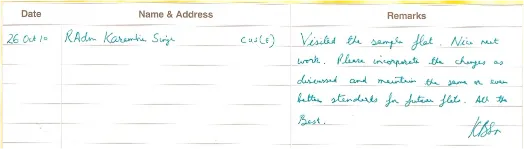 Date Name & Address Remarks
26 Oct 10 RAdm Karambir Singh CoS(E) Visited the sample flat. Nice neat
work. Please incorporate the changes as
discussed and maintain the same or even
better standards for future flats. All the
Best.